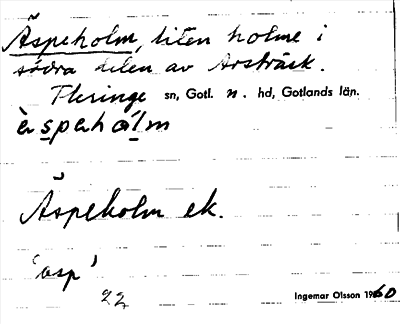 Äspeholm, liten holme i
södra delen av Arsträsk.
Fleringe sn, Gotl. n. hd, Gotlands län.
èspəhålm
Äspeholm ek.
'asp'
22
Ingemar Olsson 1960